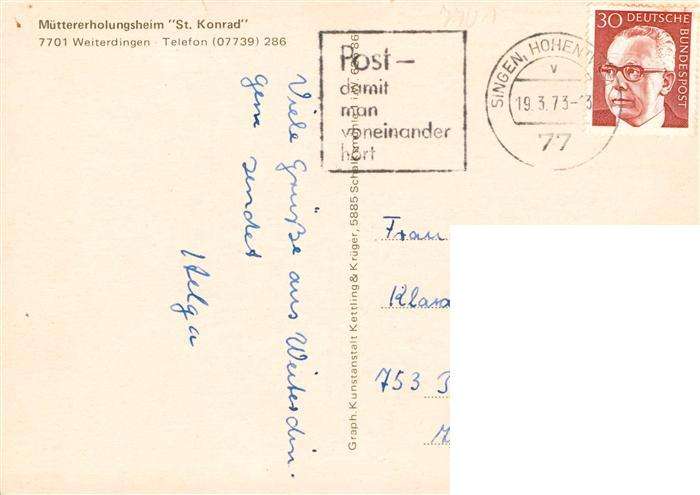 Müttererholungsheim "St. Konrad"
7701 Weiterdingen · Telefon (07739) 286
Post-
damit
man
voneinander
hört
SINGEN, HOHENTW
v
19.3.73-13
77
30 DEUTSCHE
BUNDESPOST
Viele Grüße aus Weiterdin-
gen sendet
Helga
Graph. Kunstanstalt Kettling & Krüger, 5885 Schalksmühle
Frau
Klara
753